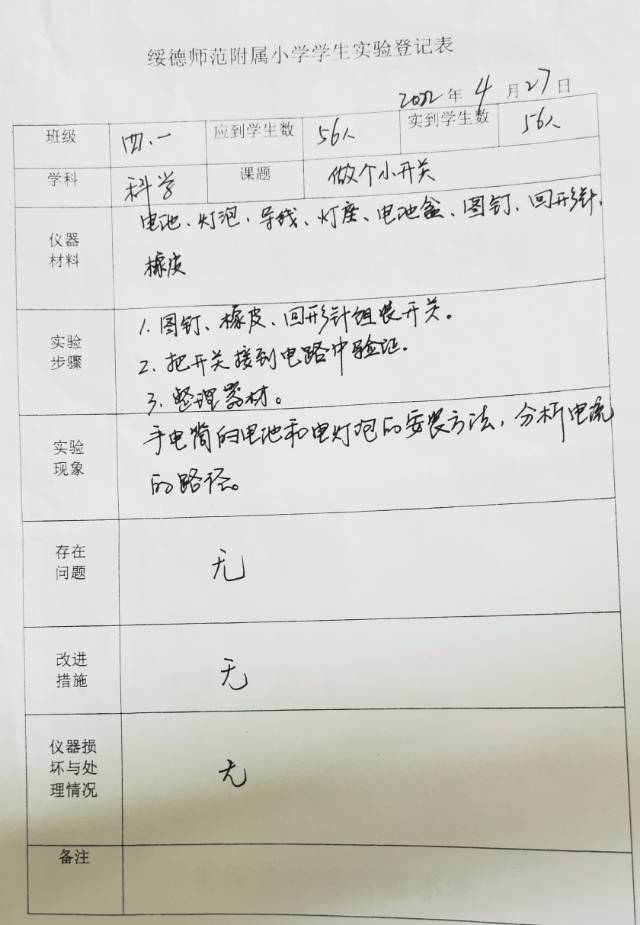 绥德师范附属小学学生实验登记表
2022年4月27日
班级 四.一 应到学生数 56人 实到学生数 56人
学科 科学 课题 做个小开关
仪器材料 电池、灯泡、导线、灯座、电池盒、图钉、回形针、
橡皮
实验步骤 1. 图钉、橡皮、回形针组装开关。
2. 把开关接到电路中验证.
3. 整理器材。
实验现象 手电筒的电池和电灯泡的安装方法，分析电流
的路径。
存在问题 无
改进措施 无
仪器损坏与处理情况 无
备注